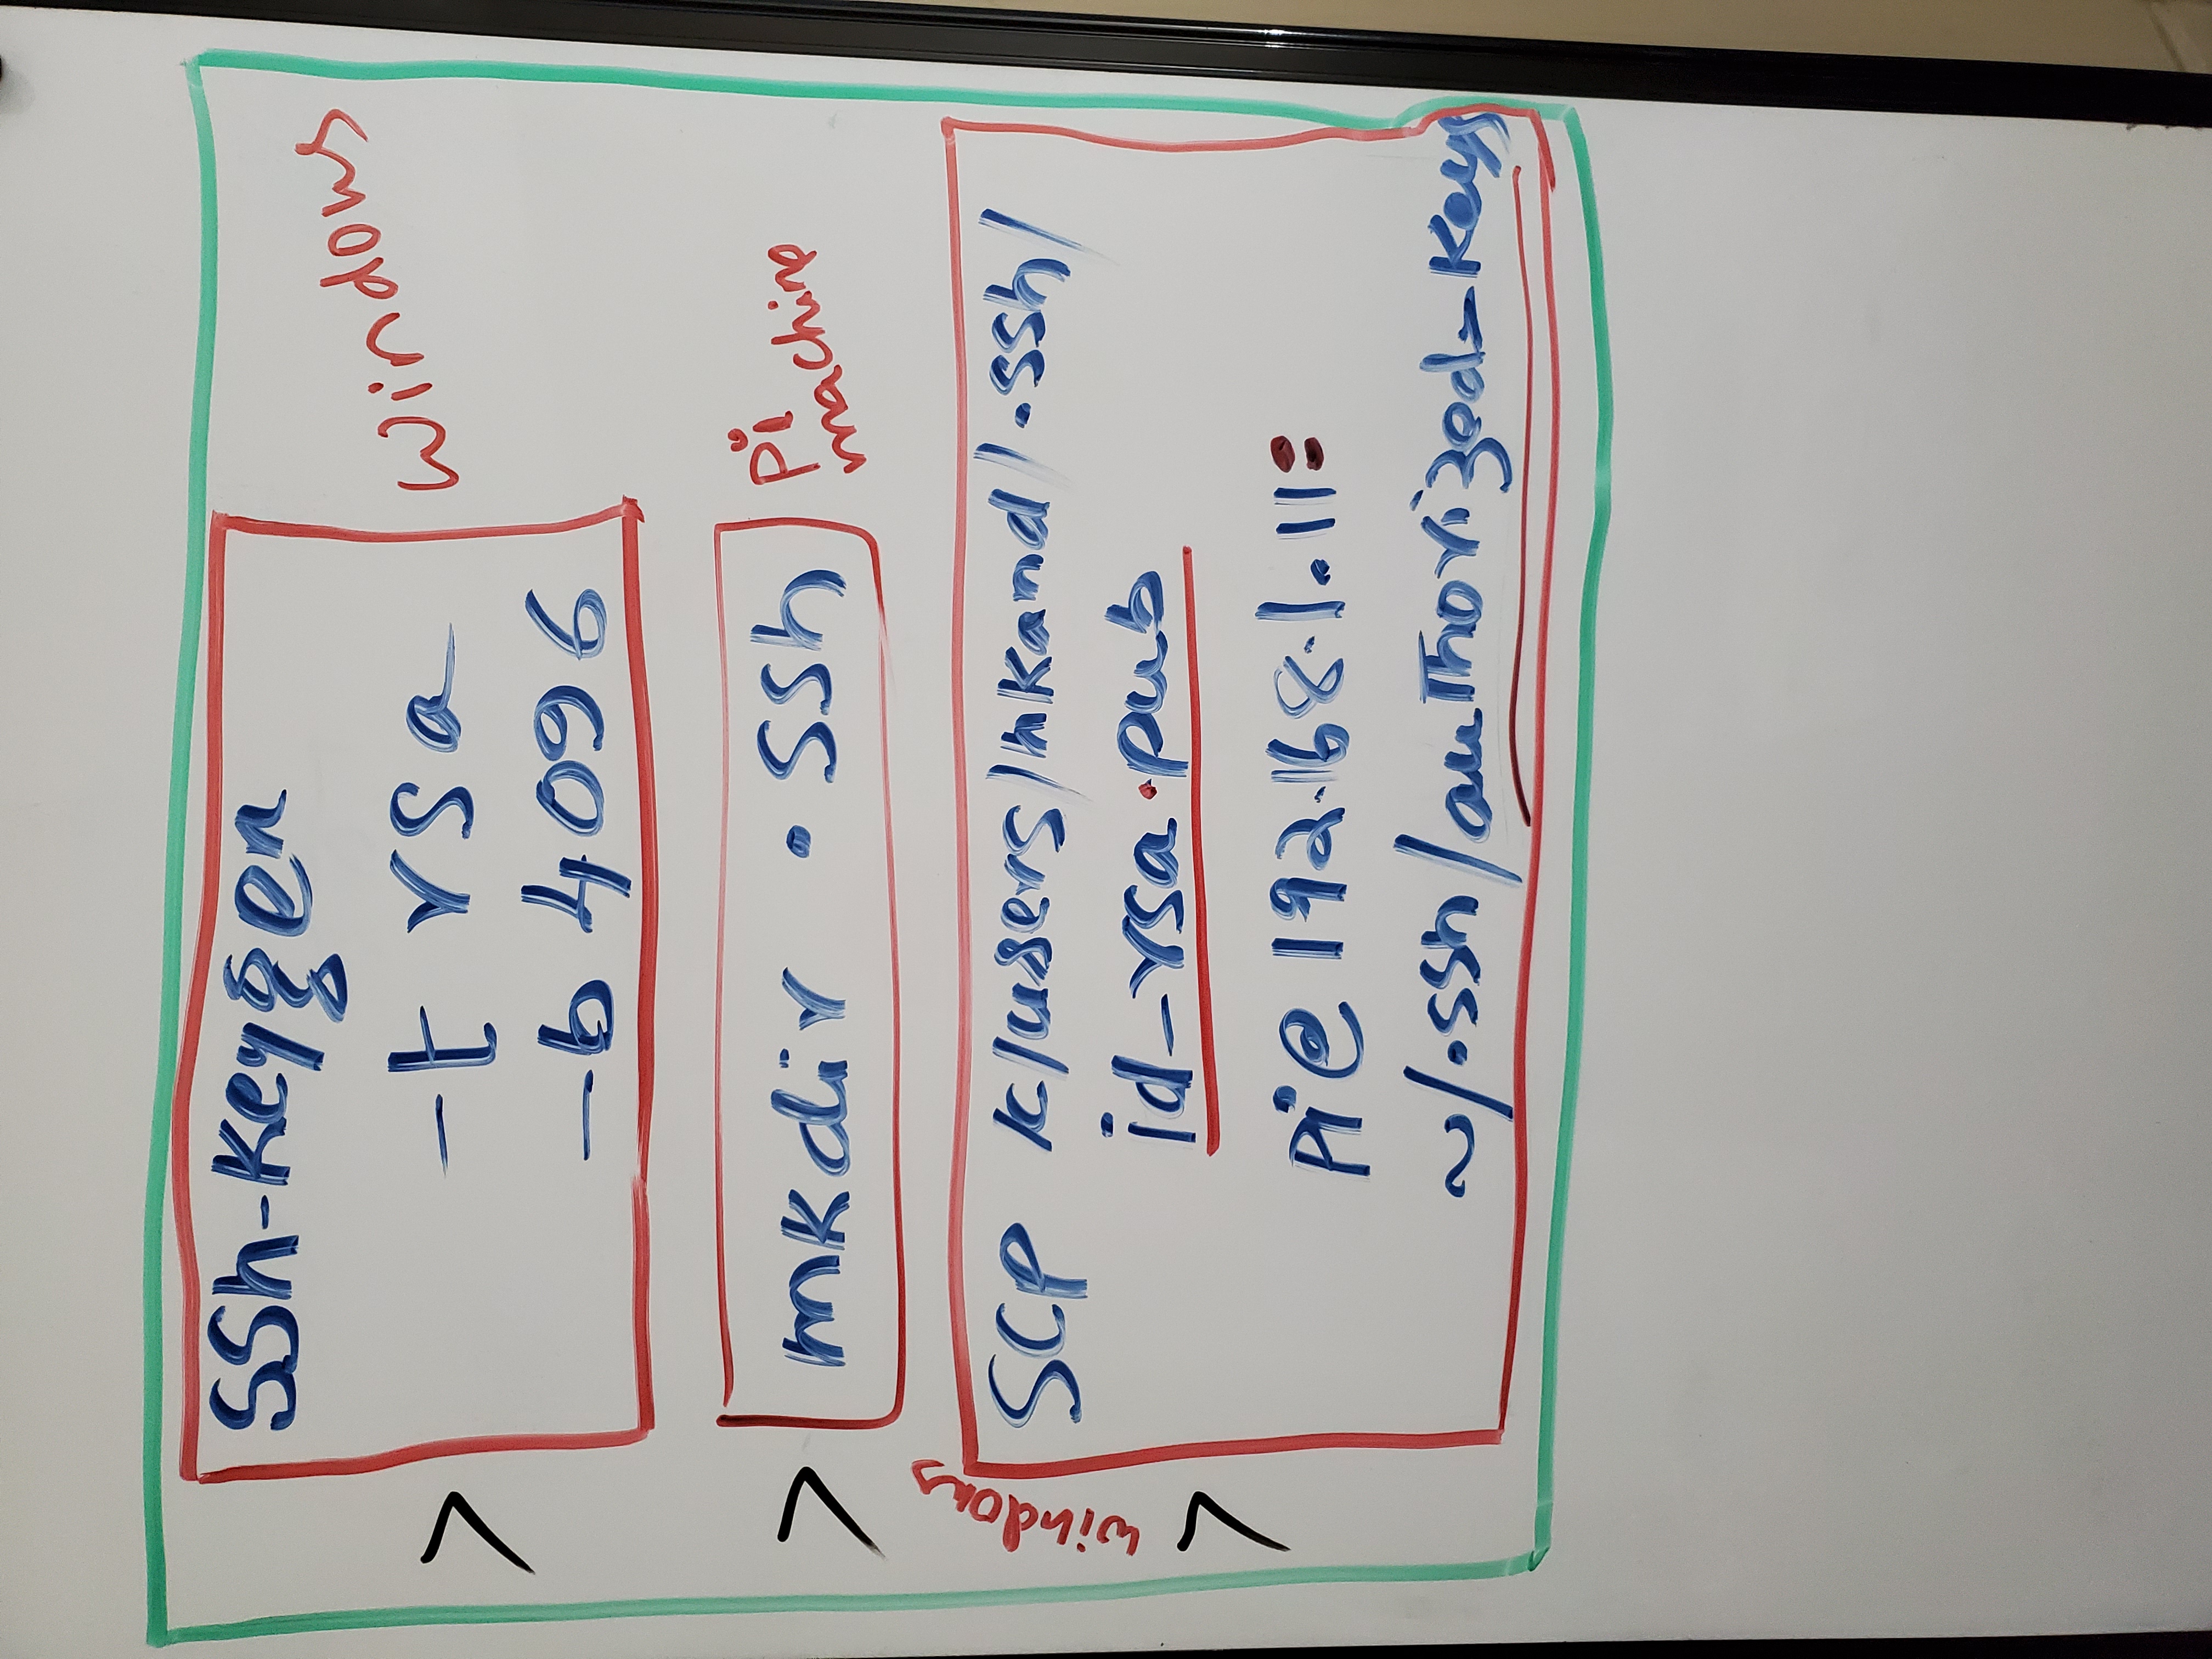 ssh-keygen
> -t rsa windows
-b 4096
> mkdir .ssh Pi
machine
windows
scp /c/users/nkand/.ssh/
id_rsa.pub
>
pi@192.168.1.11:
~/.ssh/authorized_keys